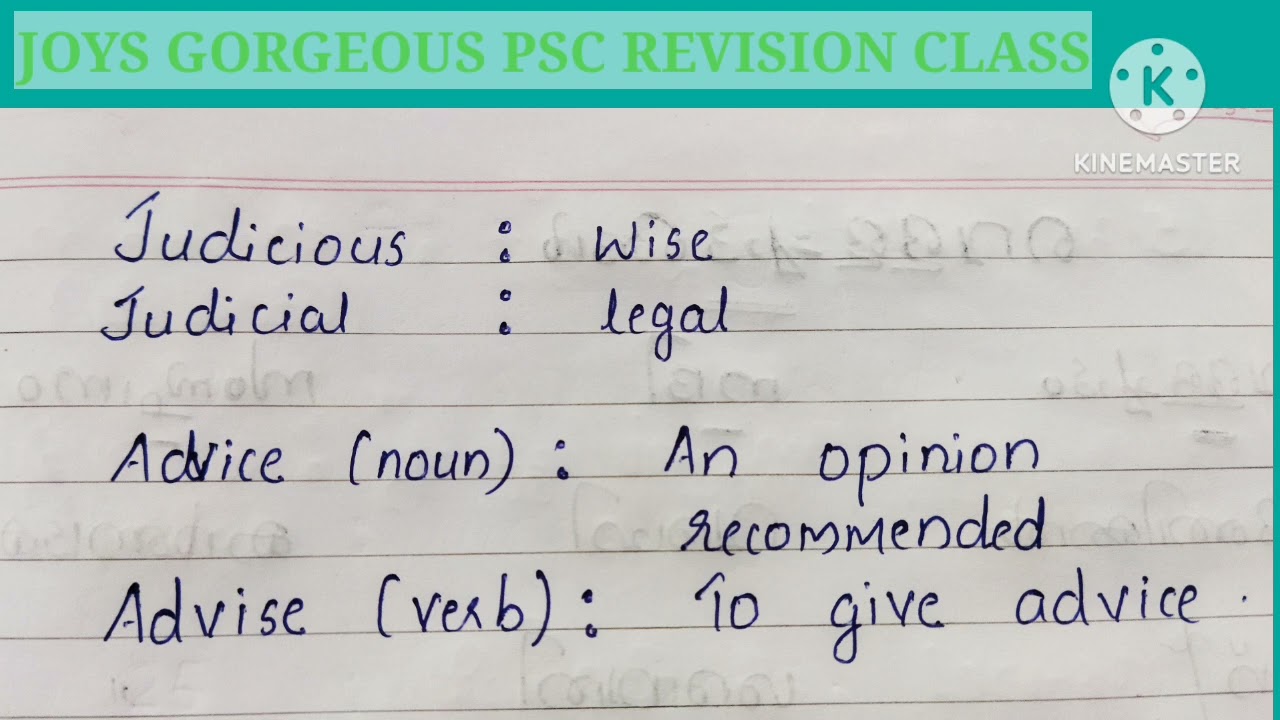 JOYS GORGEOUS PSC REVISION CLASS
K
KINEMASTER
Judicious : Wise
Judicial : legal
Advice (noun) : An opinion
recommended
Advise (verb) : To give advice.